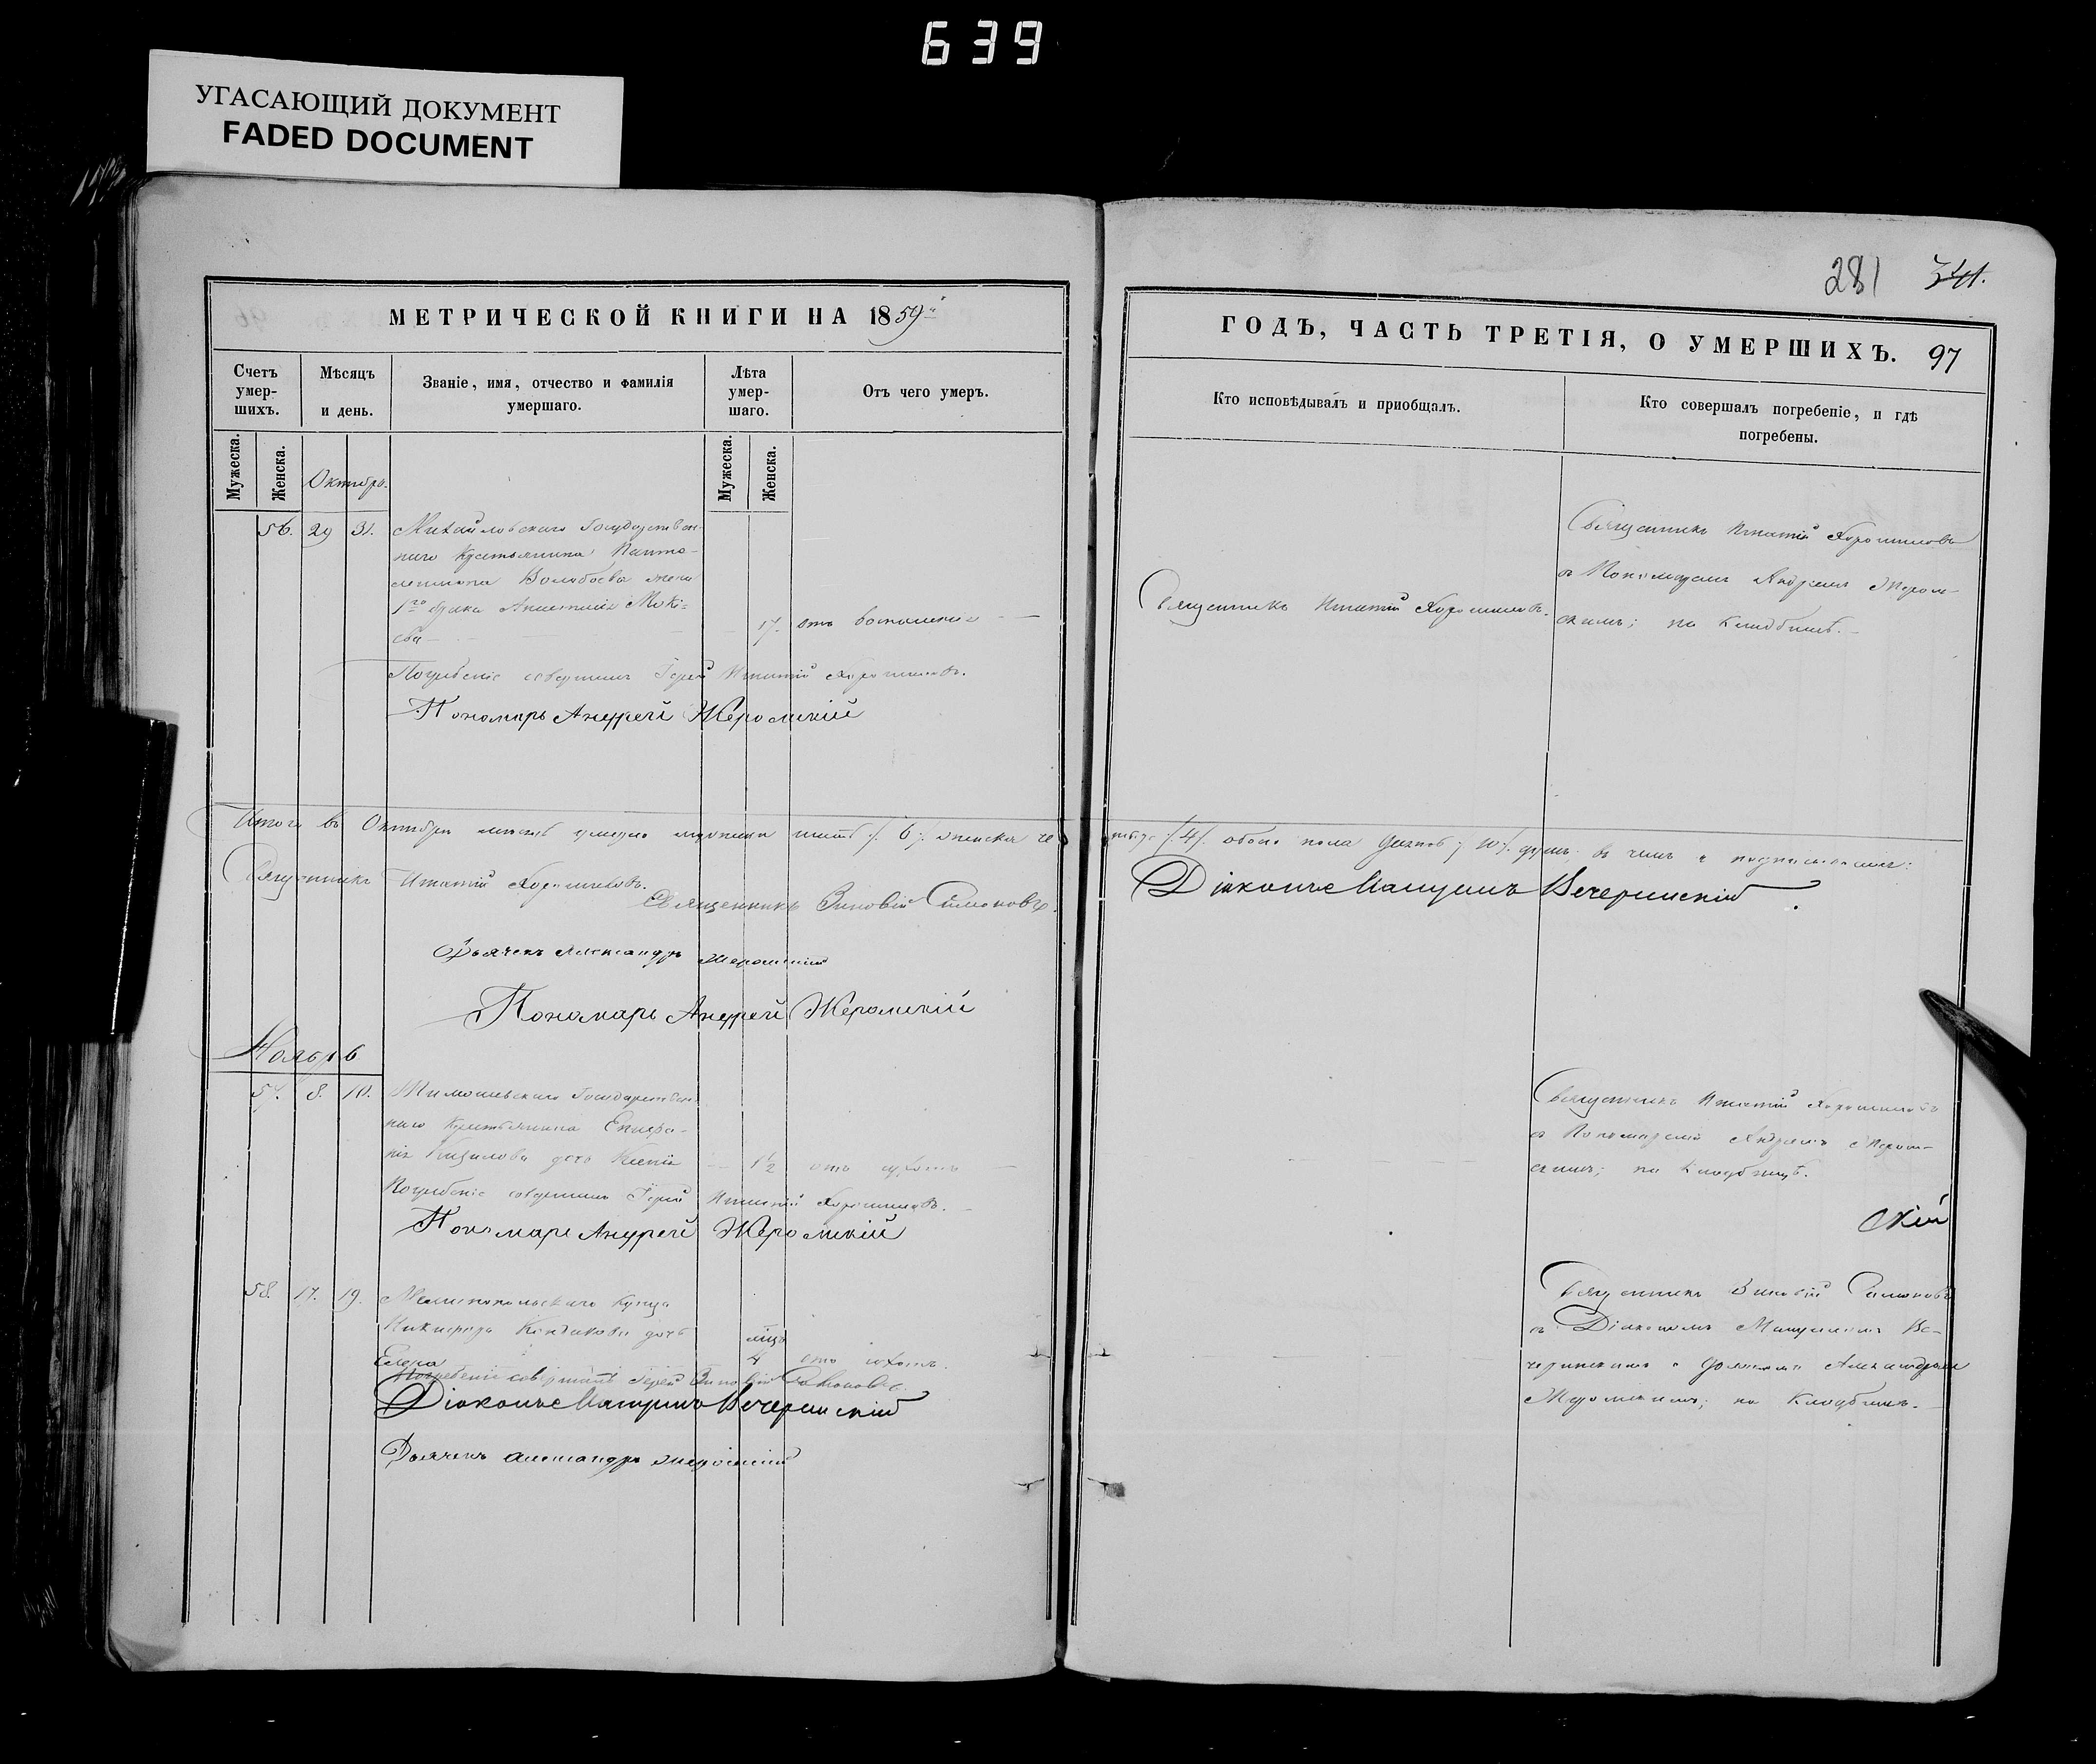 639
УГАСАЮЩИЙ ДОКУМЕНТ
FADED DOCUMENT
МЕТРИЧЕСКОЙ КНИГИ НА 1859й
Счетъ умер-шихъ.
Мѣсяцъ и день.
Званіе, имя, отчество и фамилія умершаго.
Лѣта умер-шаго.
Отъ чего умеръ.
Мужеска.
Женска.
Мужеска.
Женска.
Октябрь.
56. 29 31. Михайловскаго Государствен-
наго Крестьянина Панте-
леимона Волобоева жена
1го брака Анастасія
17. отъ воспаленія
Погребеніе совершилъ Іерей Игнатій Хорошиловъ.
Пономарь Андрей Жеромскій
Итого въ Октябрѣ мѣсяцѣ умерло мужеска шесть /. 6 /. женска че
Священникъ Игнатій Хорошиловъ.
Священникъ Зиновій Симоновъ.
Дьячекъ Александръ Жеромскій
Пономарь Андрей Жеромскій
Ноябрь
57. 8. 10. Тимошевскаго Государствен
наго Крестьянина
дочь Ксенія 1½ отъ
Погребеніе совершилъ Іерей Игнатій Хорошиловъ.
Пономарь Андрей Жеромскій
58. 17. 19. Мелитопольскаго Купца
Никифора Кондакова дочь мѣц
4 отъ
Погребеніе совершилъ Іерей Зиновій Симоновъ
Діаконъ Мануилъ Вечеринскій
Дьячекъ Александръ Жеромскій
281 341.
ГОДЪ, ЧАСТЬ ТРЕТІЯ, О УМЕРШИХЪ. 97
Кто исповѣдывалъ и пріобщалъ.
Кто совершалъ погребеніе, и гдѣ погребены.
Священникъ Игнатій Хорошиловъ.
Священникъ Игнатій Хорошиловъ
съ Пономаремъ Андреемъ Жером-
скимъ; на Кладбищѣ.
тыре /. 4 /. обоего пола десять /. 10 /. душъ. въ чемъ и подписываемся:
Діаконъ Мануилъ Вечеринскій
Священникъ Игнатій Хорошиловъ
съ Пономаремъ Андреемъ Жером-
скимъ; на Кладбищѣ.
скій
Священникъ Зиновій Симоновъ
съ Діакономъ Мануиломъ Ве-
черинскимъ и Дьячкомъ Александромъ
Жеромскимъ; на Кладбищѣ.